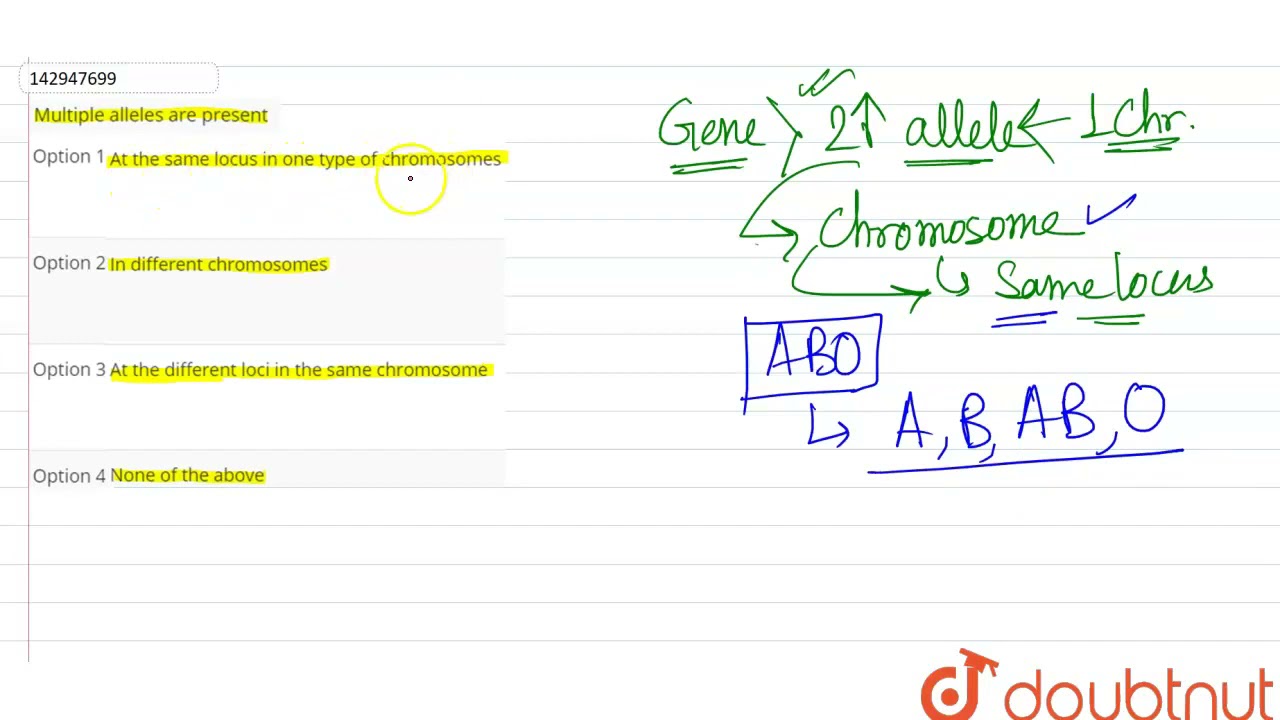 142947699
Multiple alleles are present
Option 1 At the same locus in one type of chromosomes
Option 2 In different chromosomes
Option 3 At the different loci in the same chromosome
Option 4 None of the above
Gene > 2↑ allele ← 1 Chr.
Chromosome
Same locus
ABO
A, B, AB, O
doubtnut